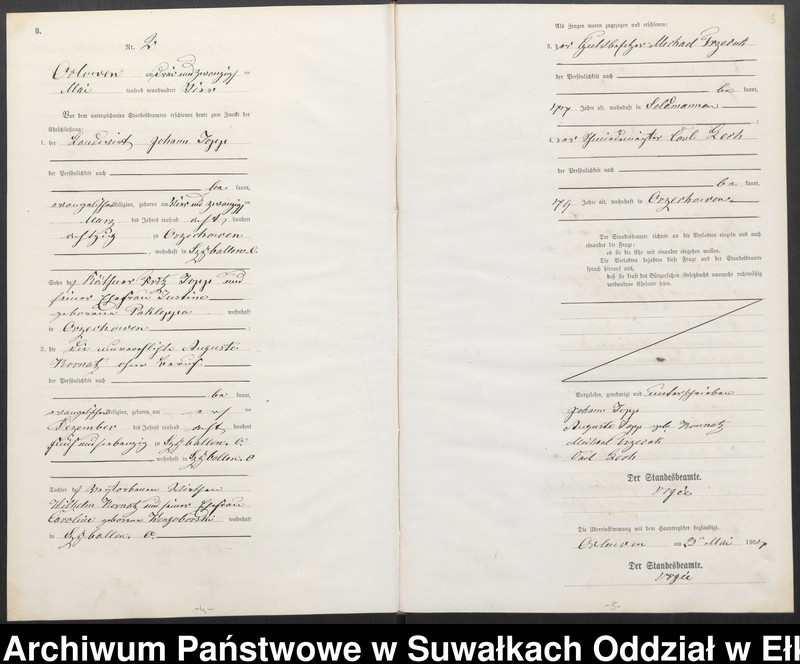 B.
Nr. 2
Orlowen am drei und zwanzigsten
Mai tausend neunhundert vier
Vor dem unterzeichneten Standesbeamten erschienen heute zum Zwecke der
Eheschließung:
1. der Landwirt Johann Topp
der Persönlichkeit nach
be kannt,
evangelischer Religion, geboren am vier und zwanzigsten
März des Jahres tausend acht hundert
achtzig zu Orzechowen
, wohnhaft in Szyballen. C.
Sohn des Käthner Fritz Topp und
seiner Ehefrau Justine
geborene Pakleppa wohnhaft
in Orzechowen ;
2. die unverehelichte Auguste
Kornatz ohne Beruf
der Persönlichkeit nach
be kannt,
evangelischer Religion, geboren am
Dezember des Jahres tausend acht hundert
fünf und siebenzig zu Szyballen. C.
, wohnhaft in Szyballen. C
Tochter des verstorbenen
Wilhelm Kornatz und seiner Ehefrau
Caroline geborene wohnhaft
in Szyballen. C.
-4-
3
Als Zeugen waren zugezogen und erschienen:
3. der Gutsbesitzer Michael Trzezak
der Persönlichkeit nach
be kannt,
Jahre alt, wohnhaft in
;
4. der Schmiedemeister Carl Zech
der Persönlichkeit nach
be kannt,
49 Jahre alt, wohnhaft in Orzechowen.
Der Standesbeamte richtete an die Verlobten einzeln und nach
einander die Frage:
ob sie die Ehe mit einander eingehen wollen.
Die Verlobten bejahten diese Frage und der Standesbeamte
sprach hierauf aus,
daß sie kraft des Bürgerlichen Gesetzbuchs nunmehr rechtmäßig
verbundene Eheleute seien.
Vorgelesen, genehmigt und unterschrieben
Johann Topp
Auguste Topp geb. Kornatz
Michael Trzezak
Carl Zech
Der Standesbeamte.
Die Übereinstimmung mit dem Hauptregister beglaubigt.
Orlowen am 23 Mai 1904
Der Standesbeamte.
-5-
Archiwum Państwowe w Suwałkach Oddział w Ełk